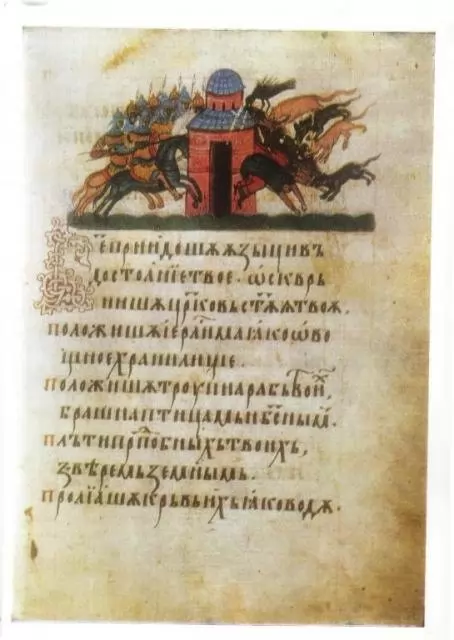 Бе҃ прїидошѧ ѧзыци въ
достоанїе твое · ѡскврь
нишѧ цр҃ковь ст҃ѫѧ твоѧ.
положишѧ іерⷭ҇лимъ ꙗко ѡво
щное хранилище.
положишѧ троупиꙗ рабь твои,
брашна птицамь нбⷭ҇ныⷨ.
плъти прⷫ҇бныхь твоих,
ꙁвѣремь ꙁемнымь.
пролїашѧ крьвь ихь ꙗко водѫ.